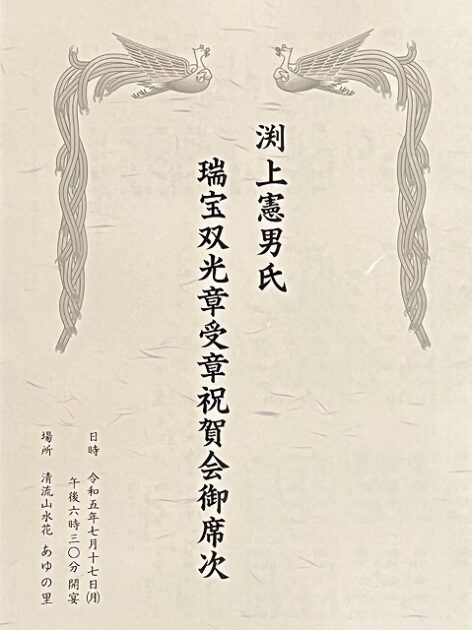 渕上憲男氏
瑞宝双光章受章祝賀会御席次
日時 令和五年七月十七日㈪
午後六時三〇分開宴
場所 清流山水花 あゆの里